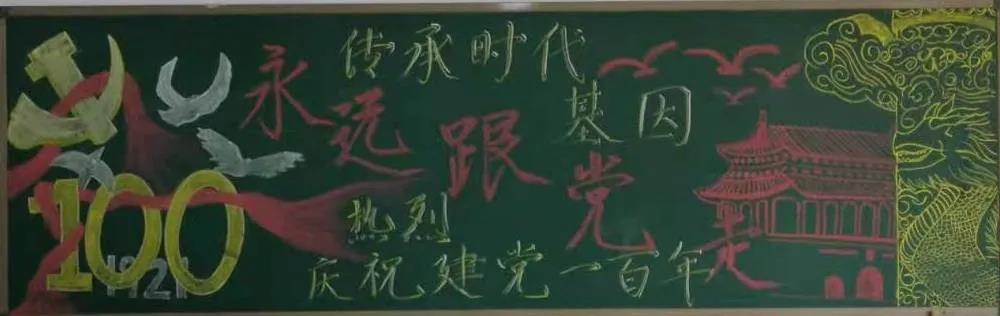 传承时代
基因
永远跟党走
热烈
庆祝建党一百年
100
1921